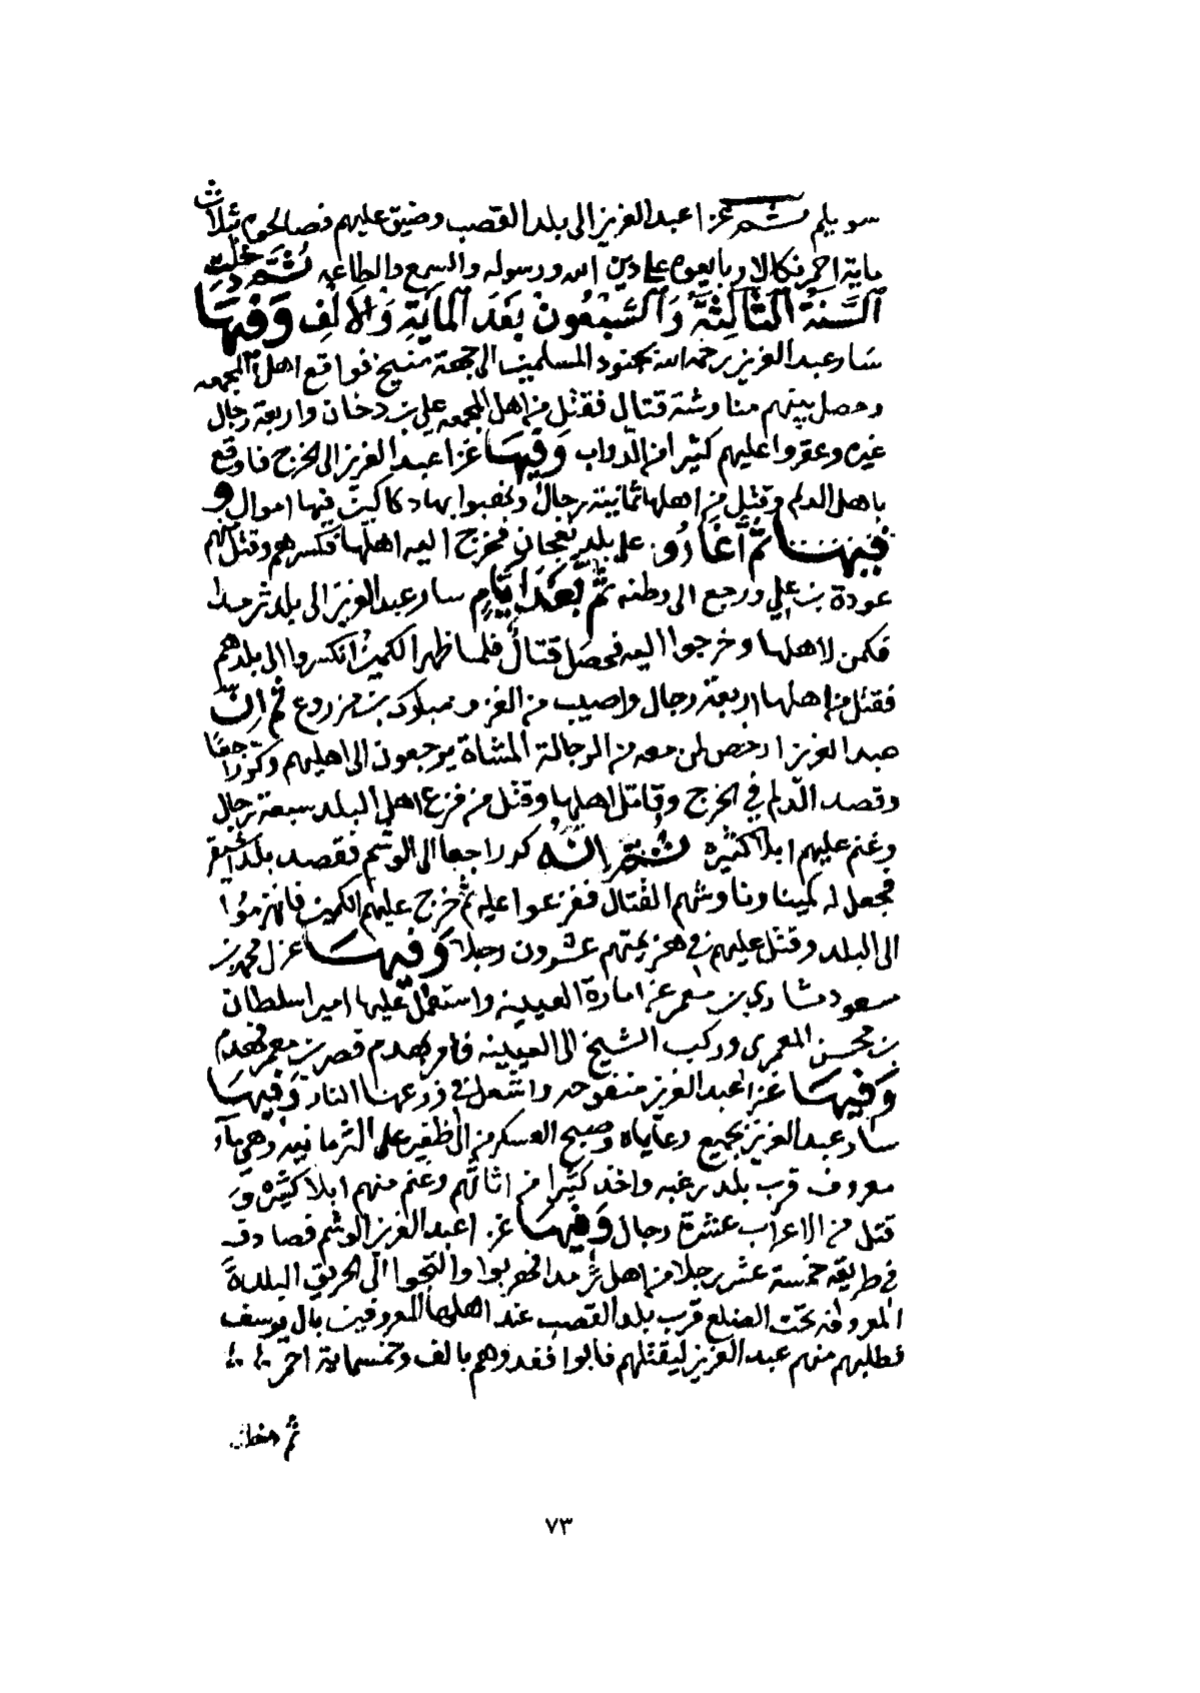 سويلم ثم غزا عبدالعزيز الى بلد القصب وضيق عليهم فصالحوه بثلاث
ماية احمر نكالا وبايعوه على دين الله ورسوله والسمع والطاعه ثم دخلت
السنة الثالثة والسبعون بعد الماية والالف وفيها
سار عبدالعزيز رحمه الله بجنود المسلمين الى جهة منيخ فواقع اهل المجمعه
وحصل بينهم مناوشة قتال فقتل من اهل المجمعه علي بن دخان واربعة رجال
غيره وعقروا عليهم كثيرا من الدواب وفيها غزا عبدالعزيز الى الخرج فاوقع
باهل الدلم وقتل من اهلها ثمانية رجال ونهبوا بها دكاكين فيها اموال و
فيها ثم أغاروا على بلد نعجان فخرج اليه اهلها فكسرهم وقتل منهم
عودة بن علي ورجع الى وطنه ثم بعد ايام سار عبدالعزيز الى بلد ثرمدا
فكمن لاهلها وخرجوا اليه فحصل قتال فلما ظهر الكمين انكسروا الى بلدهم
فقتل من اهلها اربعة رجال واصيب من الغزو مبارك بن مزروع ثم ان
عبدالعزيز ارخص لمن معه من الرجالة المشاة يرجعون الى اهليهم وكر راجعا
وقصد الدلم في الخرج وقاتل اهلها وقتل من فزع اهل البلد سبعة رجال
وغنم عليهم ابلا كثيره ثم انه كر راجعا الى الوشم فقصد بلد اشيقر
فجعل له كمينا وناوشهم القتال ففزعوا عليه ثم خرج عليهم الكمين فانهزموا
الى البلد وقتل عليهم في هزيمتهم عشرون رجلا وفيها عزل محمد بن
سعود مشاري بن معمر عن امارة العيينه واستعمل عليها امير اسلطان
بن محسن المعمري وركب الشيخ الى العيينه فامر بهدم قصر بن معمر فهدم
وفيها غزا عبدالعزيز منفوحه واشعل في زرعها النار وفيها
سار عبدالعزيز بجميع رعاياه وصبح العسكر من الظفير على الثرمانيه وهي ماء
معروف قرب بلد رغبه واخذ كثيرا من اثاثهم وغنم منهم ابلا كثيره و
قتل من الاعراب عشرة رجال وفيها غزا عبدالعزيز الوشم فصادف
في طريقه خمسة عشر رجلا من اهل ثرمدا فهربوا والتجوا الى الحريق البلدة
المعروفه تحت الضلع قرب بلد القصب عند اهلها المعروفين بال يوسف
فطلبهم منهم عبدالعزيز ليقتلهم فابوا ففدوهم بالف وخمسماية احمر
ثم
٧٣